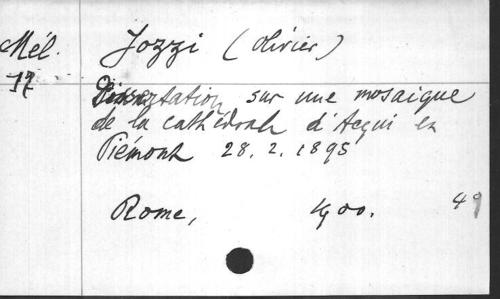 Mél. Jozzi (Olivier)
17
Dissertation sur une mosaique
de la cathédrale d'Acqui en
Piémont 28. 2. 1895
Rome, 1900. 49